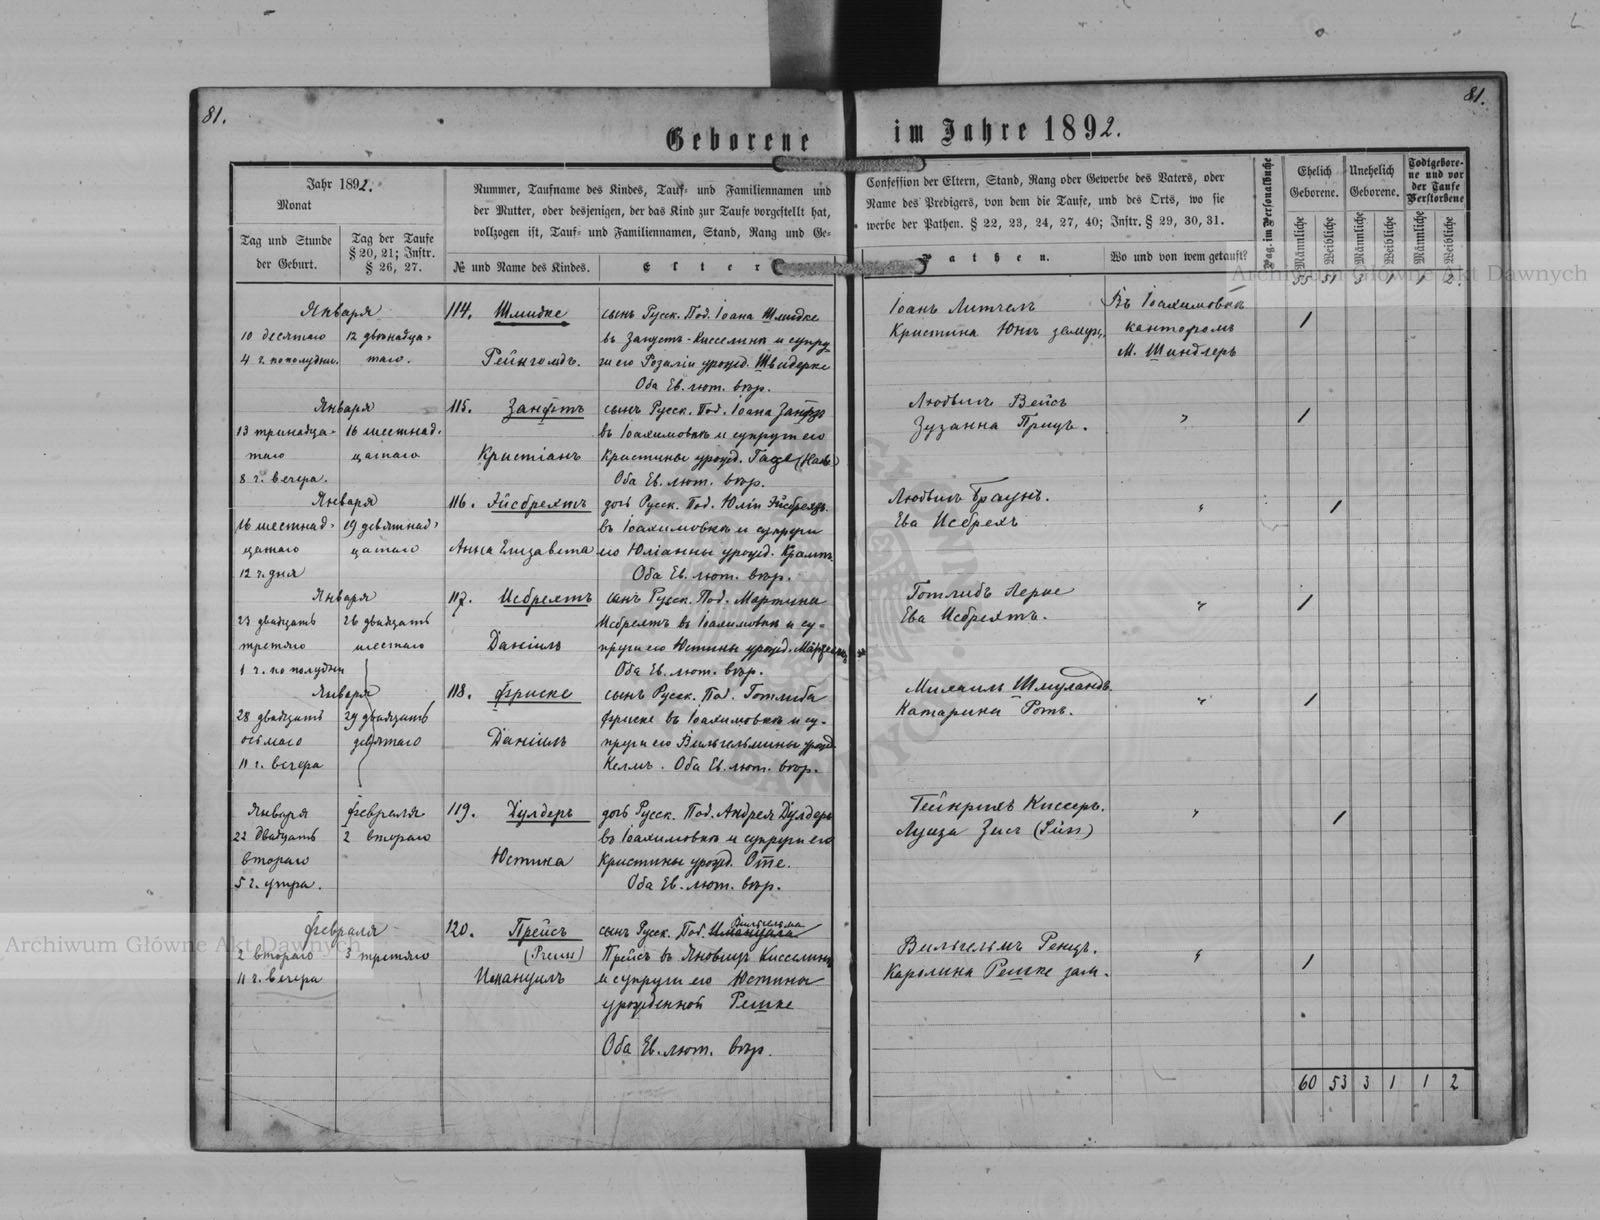 81.
81.
Geborene im Jahre 1892.
Jahr 1892.
Monat
Tag und Stunde
der Geburt.
Tag der Taufe
§ 20, 21; Instr.
§ 26, 27.
Nummer, Taufname des Kindes, Tauf- und Familiennamen und
der Mutter, oder desjenigen, der das Kind zur Taufe vorgestellt hat,
vollzogen ist, Tauf- und Familiennamen, Stand, Rang und Ge-
№ und Name des Kindes.
Elter
Confession der Eltern, Stand, Rang oder Gewerbe des Vaters, oder
Name des Predigers, von dem die Taufe, und des Orts, wo sie
werbe der Pathen. § 22, 23, 24, 27, 40; Instr. § 29, 30, 31.
Pathen.
Wo und von wem getauft?
Pag. im Personalbuche
Ehelich
Geborene.
Unehelich
Geborene.
Todtgebore-
ne und vor
der Taufe
Verstorbene
Männliche
Weibliche
Männliche
Weibliche
Männliche
Weibliche
55 51 3 1 1 2.
Января
10 десятаго
4 ч. пополудни.
12 двѣнадца-
таго.
114. Шмидке
Рейнгольдъ.
сынъ Русск. Под. Іоана Шмидке
въ Запустъ-Кисселинъ и супру-
ги его Розаліи урожд. Швидерке
Оба Ев. лют. вѣр.
Іоанъ Литчель
Кристина Юнъ замуж.
Въ Іоахимовкѣ
канторомъ
М. Шиндлеръ
1
Января
13 тринадца-
таго
8 ч. вечера.
16 шестнад-
цатаго
115. Занфтъ
Кристіанъ
сынъ Русск. Под. Іоана Занфтъ
въ Іоахимовкѣ и супруги его
Кристины урожд. Газе (Hase)
Оба Ев. лют. вѣр.
Людвигъ Вейсъ
Зузанна Прицъ.
"
1
Января
16 шестнад-
цатаго
12 ч. дня
19 девятнад-
цатаго
116. Эйсбрехтъ
Анна Елизавета
дочь Русск. Под. Юлія Эйсбрехтъ
въ Іоахимовкѣ и супруги
его Юліанны урожд.
Оба Ев. лют. вѣр.
Людвигъ Браунъ.
Ева Исбрехъ
"
1
Января
23 двадцать
третяго
1 ч. по полудни
26 двадцать
шестаго
117. Исбрехтъ
Даніилъ
сынъ Русск. Под. Мартина
Исбрехтъ въ Іоахимовкѣ и су-
пруги его Юстины урожд.
Оба Ев. лют. вѣр.
Готлибъ Лерке
Ева Исбрехтъ.
"
1
Января
28 двадцать
осьмаго
11 ч. вечера
29 двадцать
девятаго
118. Фриске
Даніилъ
сынъ Русск. Под. Готлиба
Фриске въ Іоахимовкѣ и су-
пруги его Вильгельмины урожд.
Келмъ. Оба Ев. лют. вѣр.
Михаилъ Шмуландъ.
Катарина Ротъ.
"
1
Января
22 двадцать
втораго
5 ч. утра.
Февраля
2 втораго
119. Дулдеръ
Юстина
дочь Русск. Под. Андрея Дулдеръ
въ Іоахимовкѣ и супруги его
Кристины урожд. Оте.
Оба Ев. лют. вѣр.
Гейнрихъ Киссеръ.
Луиза Зисъ (Süss)
"
1
Февраля
2 втораго
11 ч. вечера
3 третяго
120. Прейсъ
(Preuss)
Имануилъ
Вильгельма
сынъ Русск. Под. Имануила
Прейсъ въ Яновцѣ Кисселинъ
и супруги его Юстины
урожденной Решке
Оба Ев. лют. вѣр.
Вильгельмъ Ренцъ.
Каролина Решке зам.
"
1
60 53 3 1 1 2
Archiwum Główne Akt Dawnych
Archiwum Główne Akt Dawnych